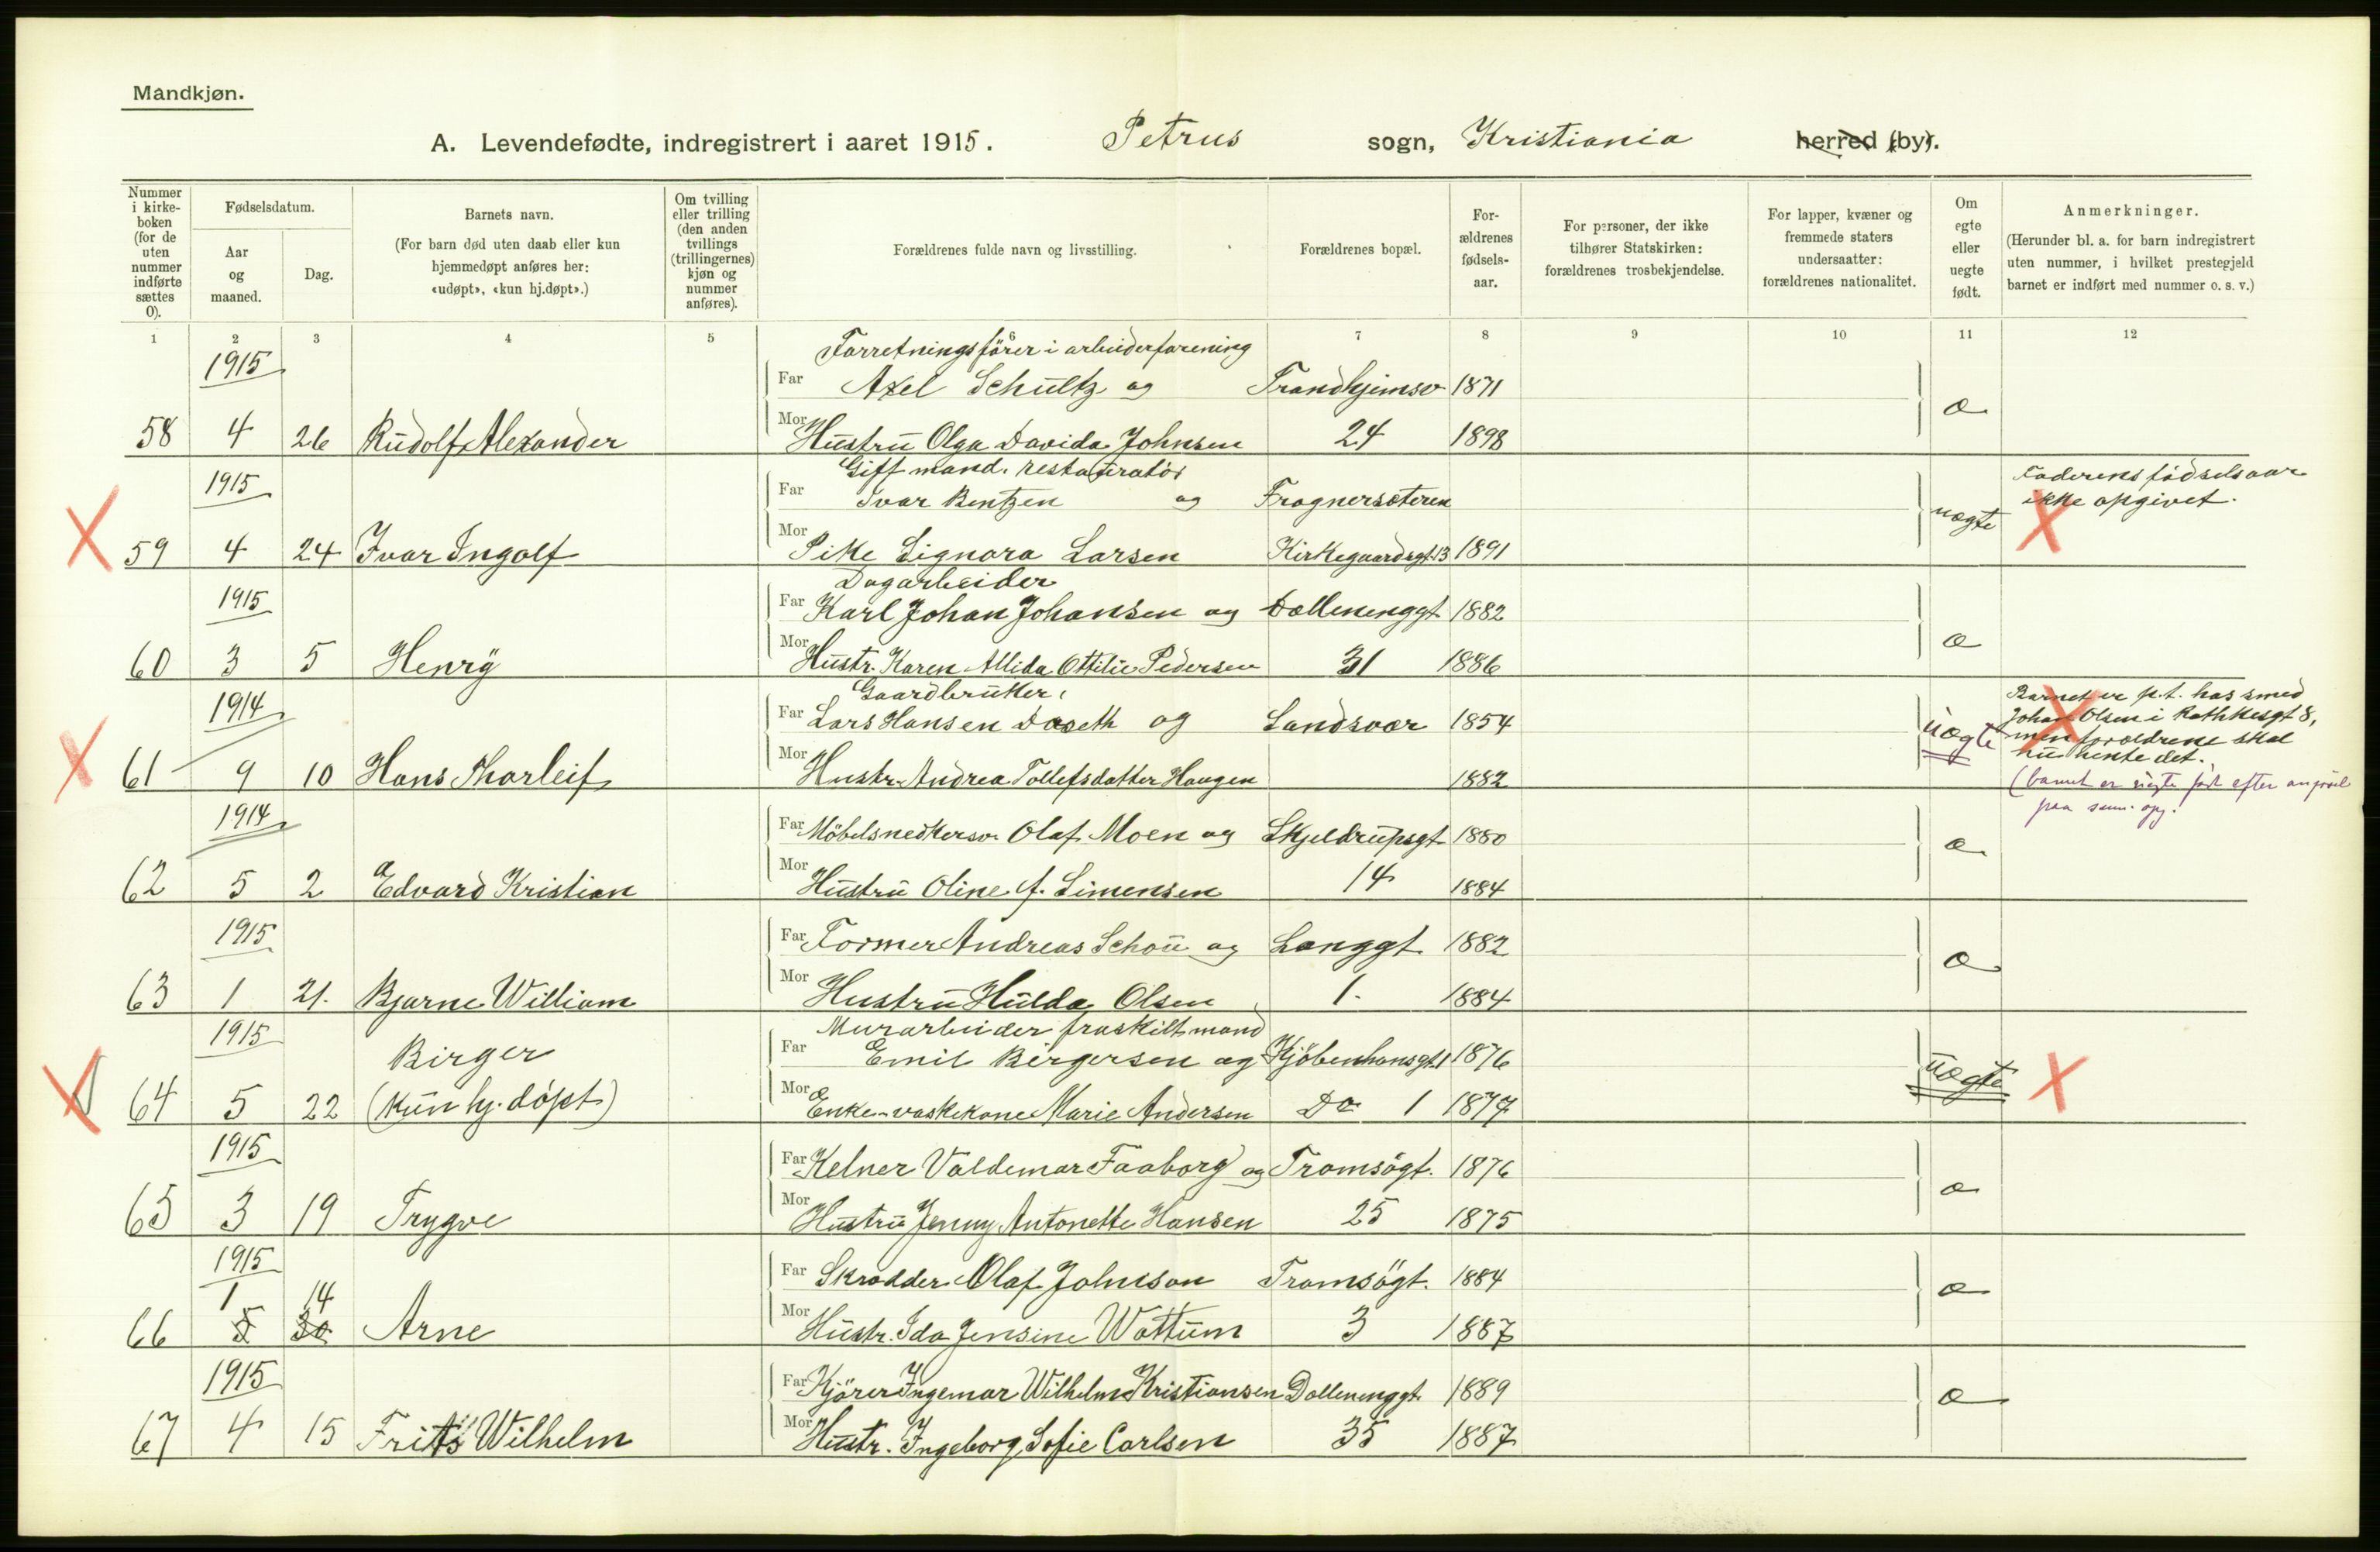 Mandkjøn.
A. Levendefødte, indregistrert i aaret 1915. Petrus sogn, Kristiania herred (by).
Nummer i kirkeboken (for de uten nummer indførte sættes 0).
Fødselsdatum.
Aar og maaned.
Dag.
Barnets navn.
(For barn død uten daab eller kun hjemmedøpt anføres her: «udøpt», «kun hj.døpt».)
Om tvilling eller trilling (den anden tvillings (trillingernes) kjøn og nummer anføres).
Forældrenes fulde navn og livsstilling.
Forældrenes bopæl.
Forældrenes fødselsaar.
For personer, der ikke tilhører Statskirken: forældrenes trosbekjendelse.
For lapper, kvæner og fremmede staters undersaatter: forældrenes nationalitet.
Om egte eller uegte født.
Anmerkninger.
(Herunder bl. a. for barn indregistrert uten nummer, i hvilket prestegjeld barnet er indført med nummer o. s. v.)
1 2 3 4 5 6 7 8 9 10 11 12
1915 Forretningsfører i arbeiderforening
Far Axel Schultz og Trondhjemsv 1871
58 4 26 Rudolf Alexander Mor Hustru Olga Davida Johnsen 24 1898 æ
1915 Gift mand. restauratør
Far Ivar Bentzen og Frognersæteren
Faderens fødselsaar
ikke opgivet.
59 4 24 Ivar Ingolf Mor Pike Signora Larsen Kirkegaardsgt 13 1891 uægte
1915 Dagarbeider
Far Karl Johan Johansen og Dællenenggt 1882
60 3 5 Henry Mor Hustr. Karen Allida Ottilie Pedersen 31 1886 æ
1914 Gaardbruker,
Far Lars Hansen Daseth og Sandsvær 1854
Barnet er p.t. hos smed
Johan Olsen i Rathkesgt 8,
men forældrene skal
nu hente det.
61 9 10 Hans Thorleif Mor Hustr. Andrea Tollefsdatter Haugen 1882 uægte
(barnet er uægte født efter
1914
Far Møbelsnedkersv. Olaf Moen og Skjeldrupsgt 1880
62 5 2 Edvard Kristian Mor Hustru Oline f. Simensen 14 1884 æ
1915
Far Former Andreas Schou og Langgt 1882
63 1 21. Bjarne William Mor Hustru Hulda Olsen 1. 1884 æ
1915 Murarbeider fraskilt mand
Birger Far Emil Birgersen og Kjöbenhavnsgt. 1 1876
64 5 22 (kun hj. døpt) Mor Enke-vaskekone Marie Andersen Do 1 1877 uægte
1915
Far Kelner Valdemar Faaborg og Tromsögt. 1876
65 3 19 Trygve Mor Hustru Jenny Antonette Hansen 25 1875 æ
1915
Far Skrædder Olaf Johnson Tromsögt. 1884
1 14
66 5 30 Arne Mor Hustr. Ida Jensine Wattum 3 1887 æ
1915
Far Kjörer Ingemar Wilhelm Kristiansen Dællenenggt 1889
67 4 15 Frits Wilhelm Mor Hustr. Ingeborg Sofie Carlsen 35 1887 æ